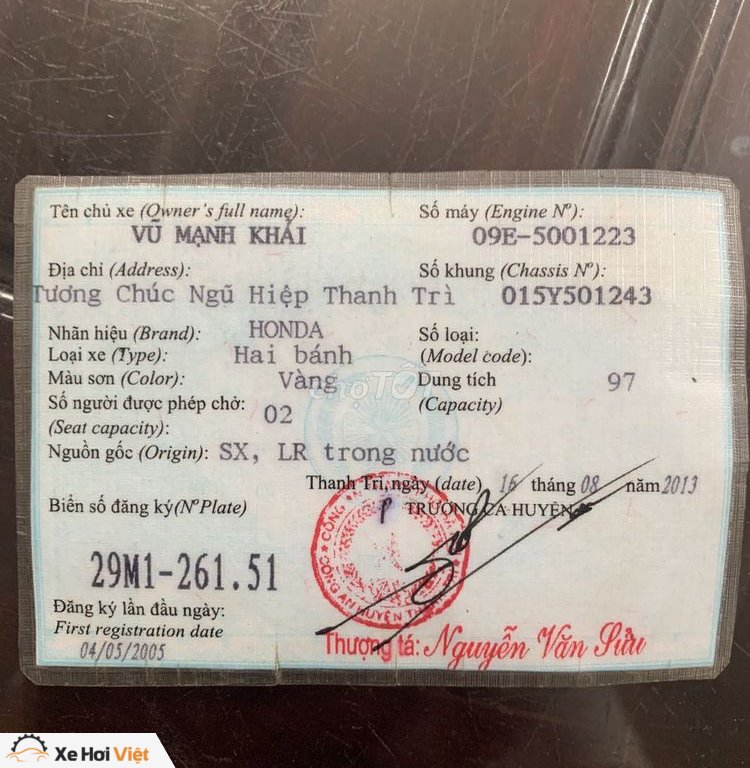 Tên chủ xe (Owner's full name):
VŨ MẠNH KHẢI
Số máy (Engine Nº):
09E-5001223
Địa chỉ (Address):
Tương Chúc Ngũ Hiệp Thanh Trì
Số khung (Chassis Nº):
015Y501243
Nhãn hiệu (Brand): HONDA
Số loại:
(Model code):
Loại xe (Type): Hai bánh
Màu sơn (Color): Vàng
Dung tích 97
(Capacity)
Số người được phép chở: 02
(Seat capacity):
Nguồn gốc (Origin): SX, LR trong nước
Thanh Trì, ngày (date) 16 tháng 08 năm 2013
Biển số đăng ký(Nº Plate)
TRƯỞNG CA HUYỆN
29M1-261.51
Đăng ký lần đầu ngày:
First registration date
04/05/2005
CÔNG AN HUYỆN
Thượng tá: Nguyễn Văn Sửu
chợTỐT
Xe Hơi Việt